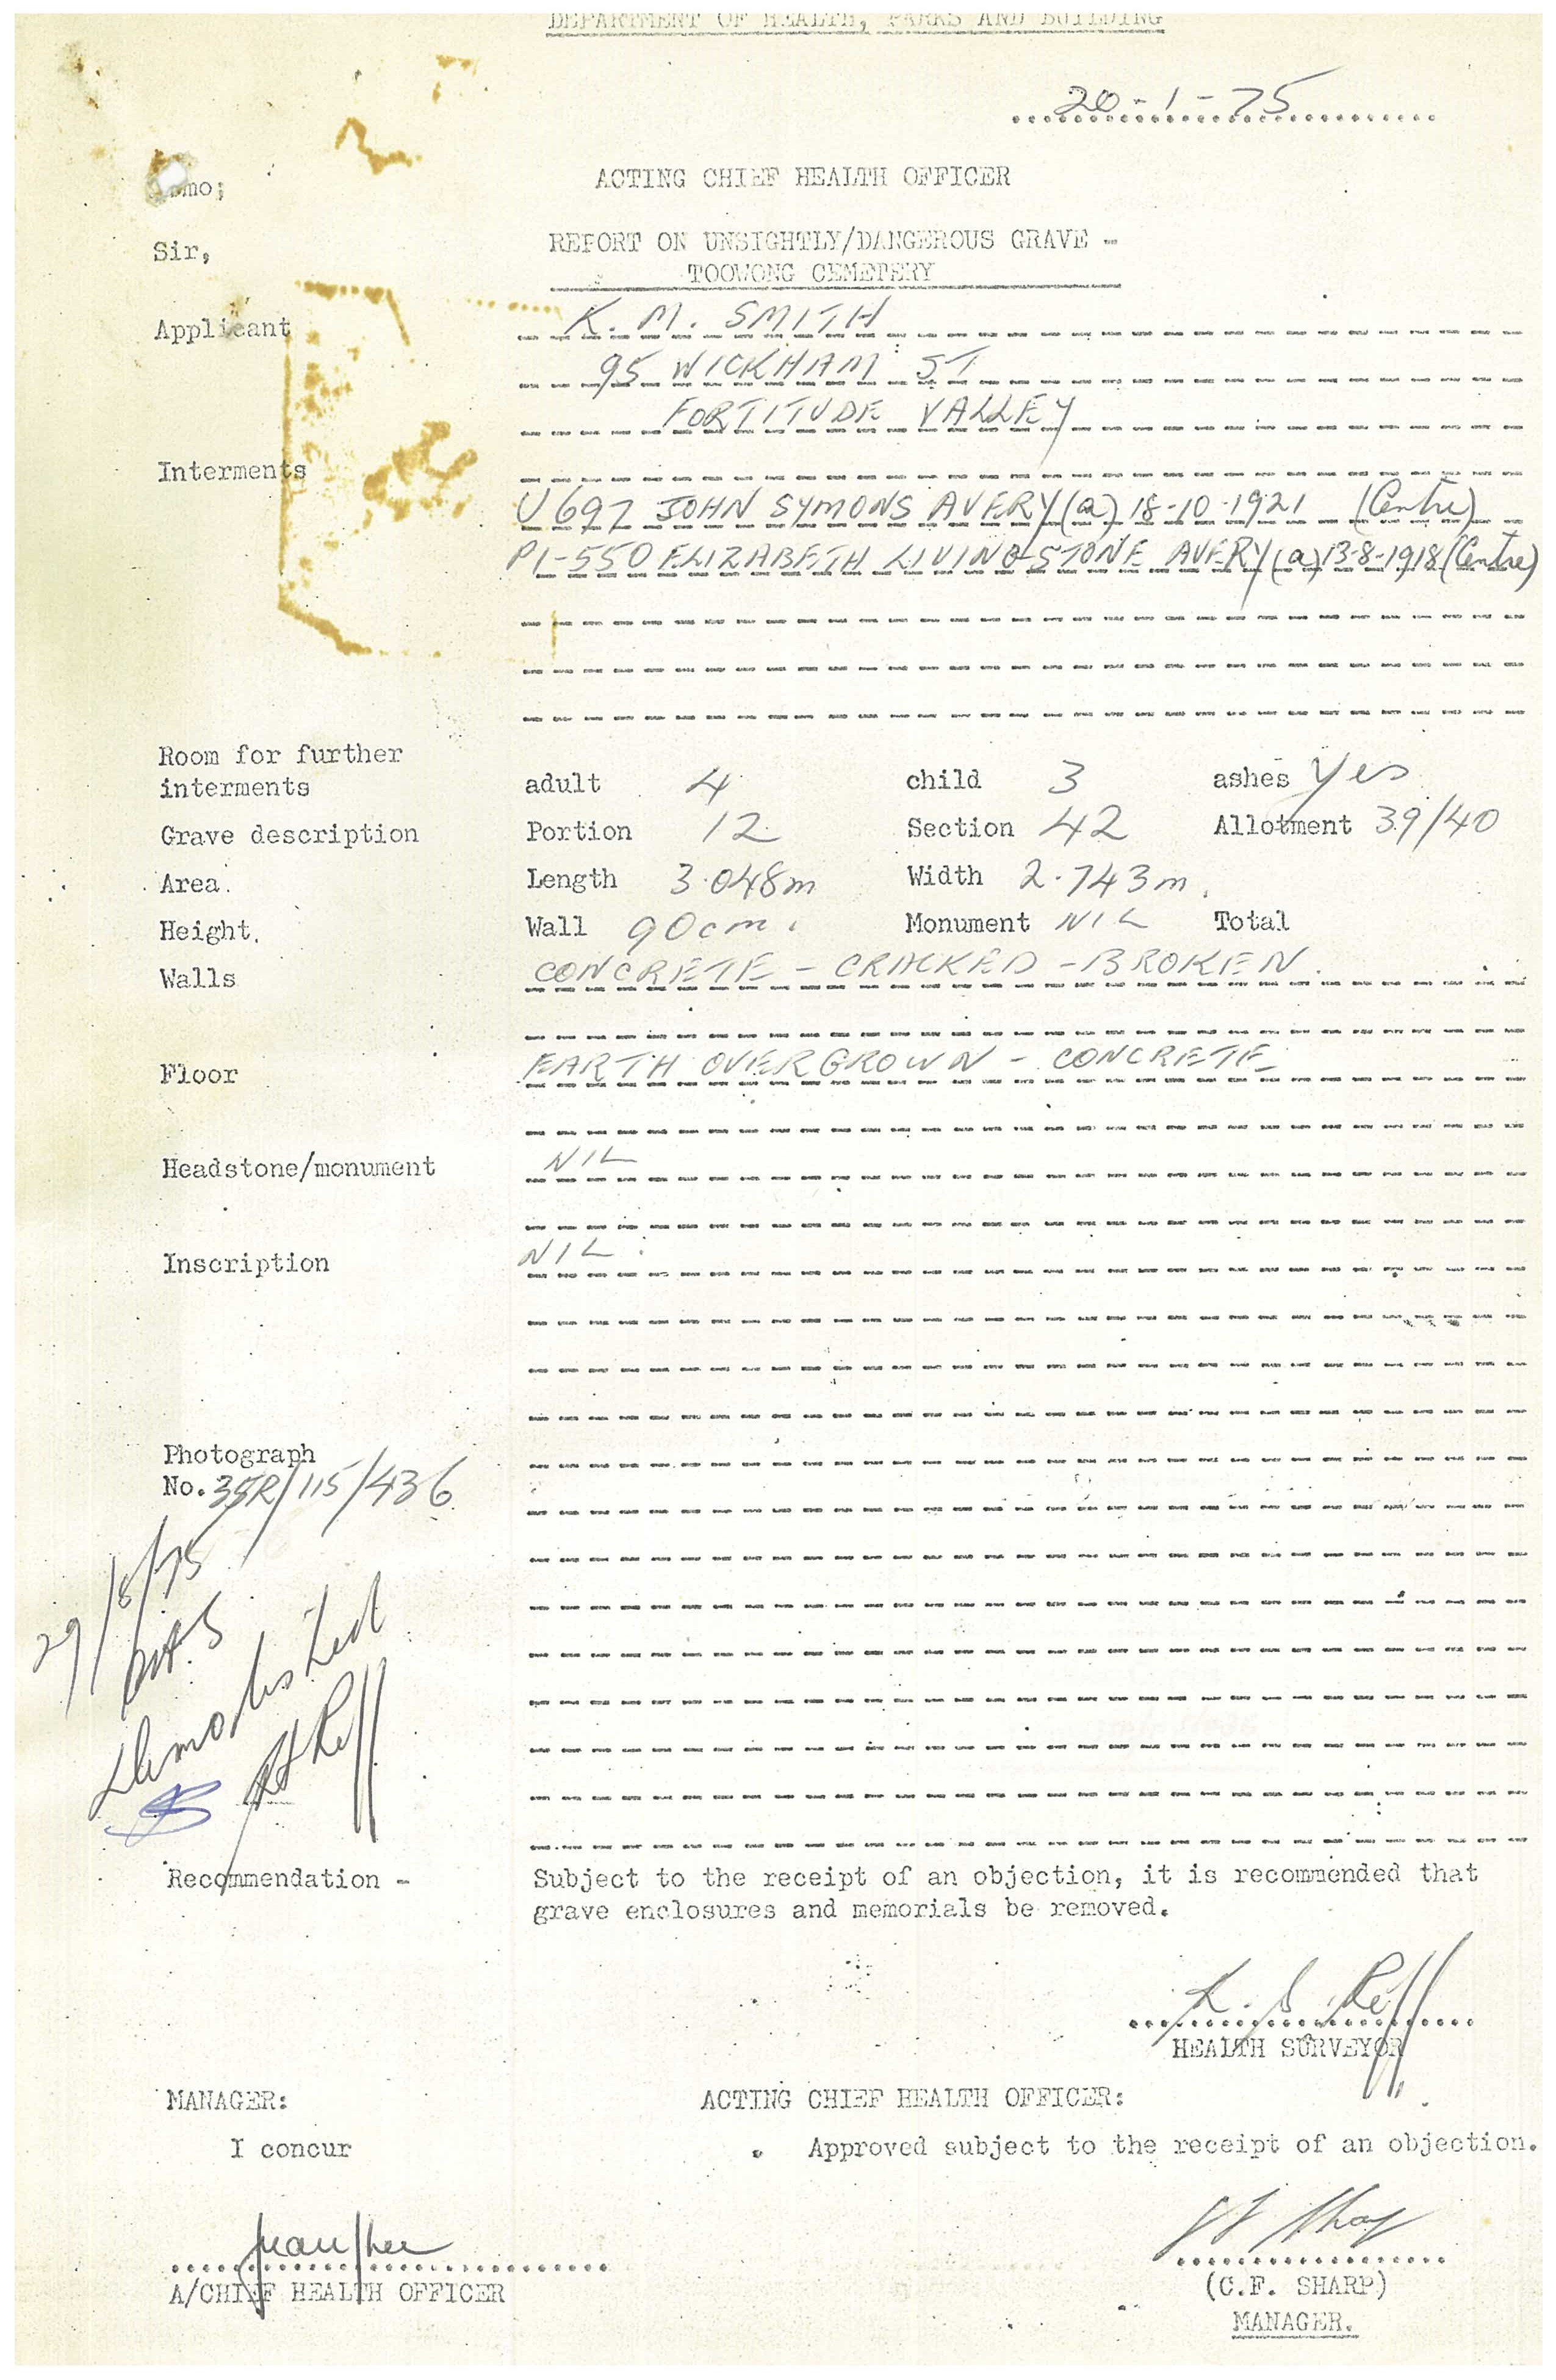 DEPARTMENT OF HEALTH, PARKS AND BUILDING
20-1-75
ACTING CHIEF HEALTH OFFICER
Sir,
REPORT ON UNSIGHTLY/DANGEROUS GRAVE -
TOOWONG CEMETERY
Applicant K. M. SMITH
95 WICKHAM ST
FORTITUDE VALLEY
Interments
U697 JOHN SYMONS AVERY (a) 18-10-1921 (Centre)
P1-550 ELIZABETH LIVINGSTONE AVERY (a) 13-8-1918 (Centre)
Room for further
interments adult 4 child 3 ashes Yes
Grave description Portion 12 Section 42 Allotment 39/40
Area. Length 3.048m Width 2.743m.
Height. Wall 90cm. Monument NIL Total
Walls CONCRETE - CRACKED - BROKEN.
Floor EARTH OVERGROWN - CONCRETE
Headstone/monument NIL
Inscription NIL.
Photograph
No. 35R/115/436
29/8/75
Demolished
Recommendation - Subject to the receipt of an objection, it is recommended that
grave enclosures and memorials be removed.
HEALTH SURVEYOR
MANAGER: ACTING CHIEF HEALTH OFFICER:
I concur . Approved subject to the receipt of an objection.
A/CHIEF HEALTH OFFICER
(C.F. SHARP)
MANAGER.